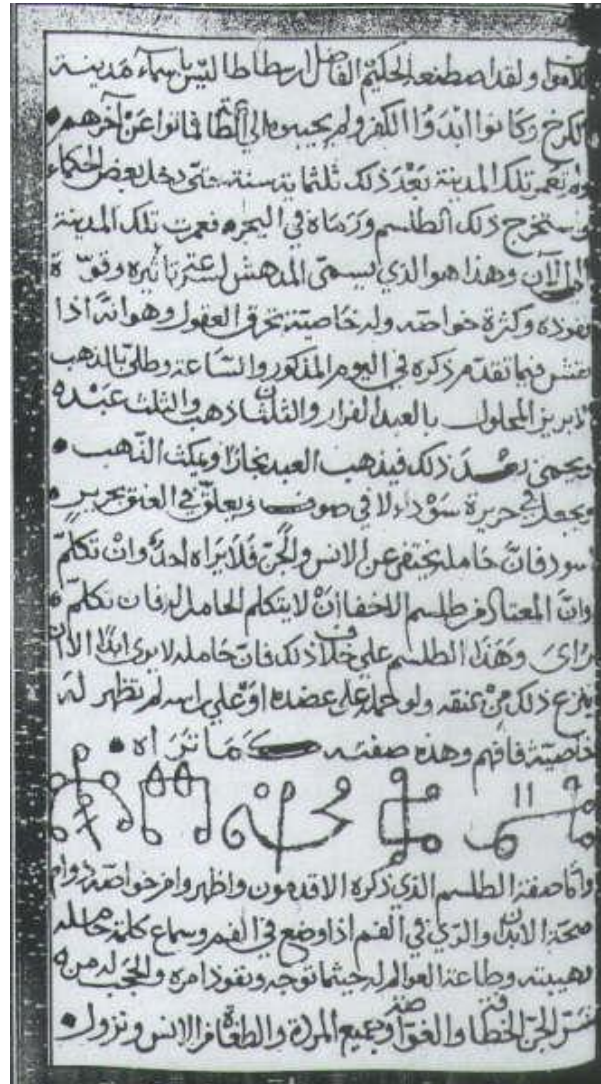 ولقد اصطنعه الحكيم الفاضل ارسطاطاليس باسماء مدينة
الكرخ وكانوا ابدوا الكفر ولم يجيبوه الي الطاقة فماتوا عن آخرهم
ولم تعمر تلك المدينة بعد ذلك ثلثماية سنة حتى دخل بعض الحكماء
واستخرج ذلك الطلسم ورماه في البحر فعمرت تلك المدينة
الي الآن وهذا هو الذي يسمى المدهش لسعة تاثيره وقوة
نفوذه وكثرة خواصه وله خاصية تخرق العقول وهو انه اذا
نقش فيما تقدم ذكره في اليوم المذكور والساعة وطلي بالذهب
الابريز المحلول بالعبد الفرار والثلثان ذهب والثلث عبد
ويحمى بعد ذلك فيذهب العبد بخارا ويمكث الذهب
ويجعل في حريرة سوداء لا في صوف ويعلق في العنق بحرير
اسود فان حامله يختفي عن الانس والجن فلا يراه احد وان تكلم
وان المعتاد في طلسم الاخفا ان لا يتكلم الحامل له فان تكلم
رأى وهذا الطلسم علي خلاف ذلك فان حامله لا يرى ابدا الا ان
ينزع ذلك من عنقه ولو حمله علي عضده او علي راسه لم تظهر له
خاصية فافهم وهذه صفته كما تراه
وأما صفة الطلسم الذي ذكره الاقدمون واظهروا من خواصه دوام
صحة الابدان والري في الفم اذا وضع في الفم وسماع كلمة حامله
وهيبته وطاعة العوالم له حيثما توجه ونفوذ امره والحجب له من
شر الجن الخطافة والغواصة وجميع المردة والطغاة من الانس ونزول